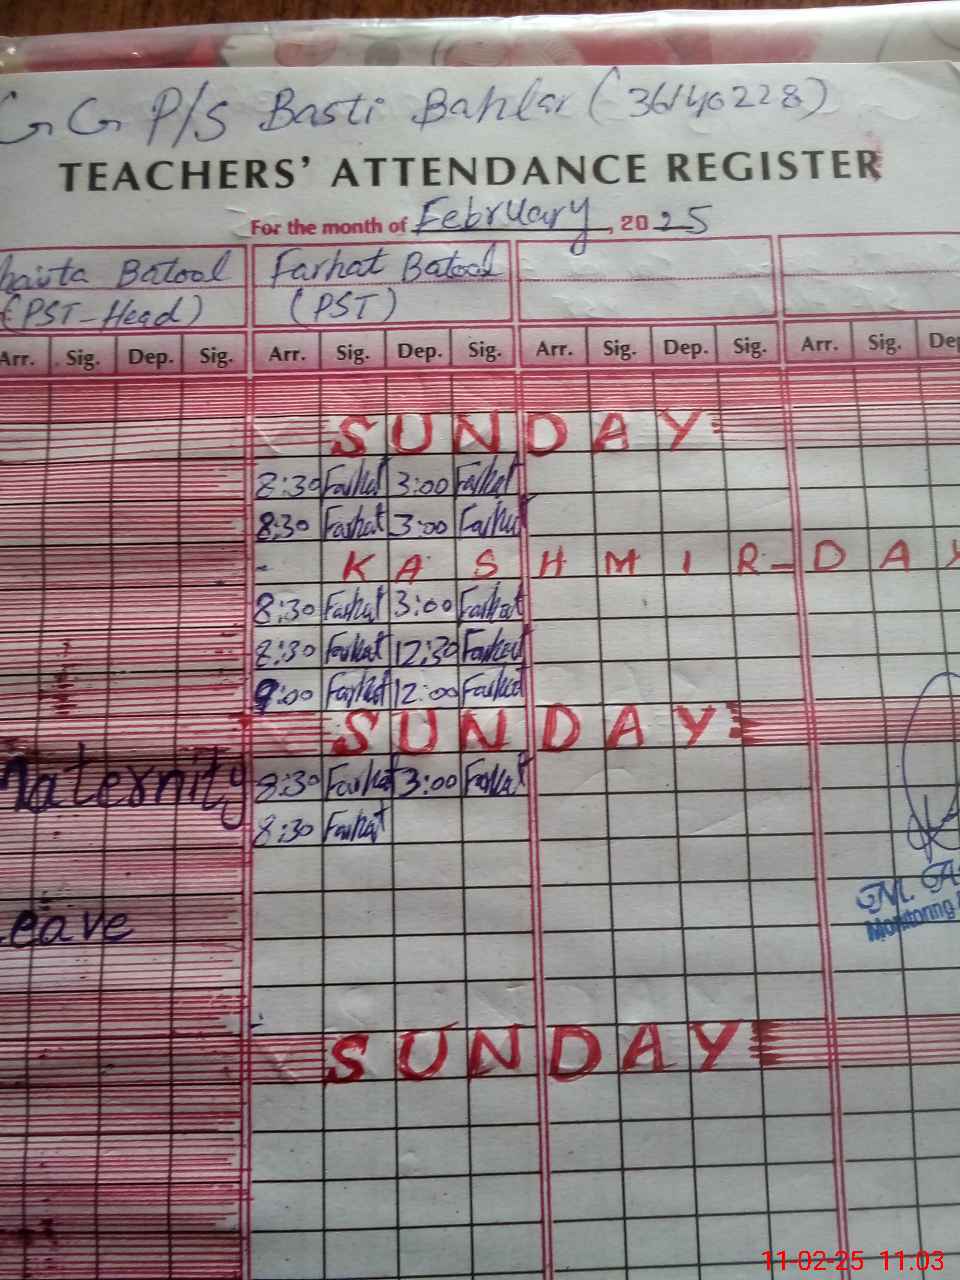 G G P/S Basti Bahlar (36140228)
TEACHERS' ATTENDANCE REGISTER
For the month of February, 2025
Batool Farhat Batool
(PST-Head) (PST)
Arr. Sig. Dep. Sig. Arr. Sig. Dep. Sig. Arr. Sig. Dep. Sig. Arr. Sig. Dep
SUNDAY
8:30 Farhat 3:00 Farhat
8:30 Farhat 3:00 Farhat
KASHMIR-DAY
8:30 Farhat 3:00 Farhat
8:30 Farhat 12:30 Farhat
9:00 Farhat 12:00 Farhat
SUNDAY
Maternity 8:30 Farhat 3:00 Farhat
8:30 Farhat
M.
Leave Monitoring
SUNDAY
11-02-25 11.03